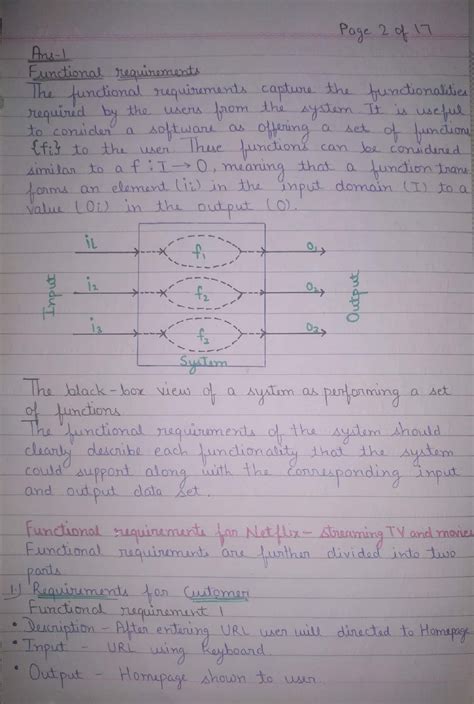 Page 2 of 17
Ans-1
Functional requirements
The functional requirements capture the functionalities
required by the users from the system It is useful
to consider a software as offering a set of function
{fi} to the user. These functions can be considered
similar to a f : I → O, meaning that a function trans
forms an element (ii) in the input domain (I) to a
value (Oi) in the output (O).
Input
i1 f1 O1
i2 f2 O2
i3 f3 O3
Output
System
The black-box view of a system as performing a set
of functions
The functional requirements of the system should
clearly describe each functionality that the system
could support along with the corresponding input
and output data set.
Functional requirements for Netflix- streaming TV and movies
Functional requirements are further divided into two
parts
1.) Requirements for Customer
Functional requirement 1
• Description - After entering URL user will directed to Homepage
• Input - URL using Keyboard.
• Output - Homepage shown to user.